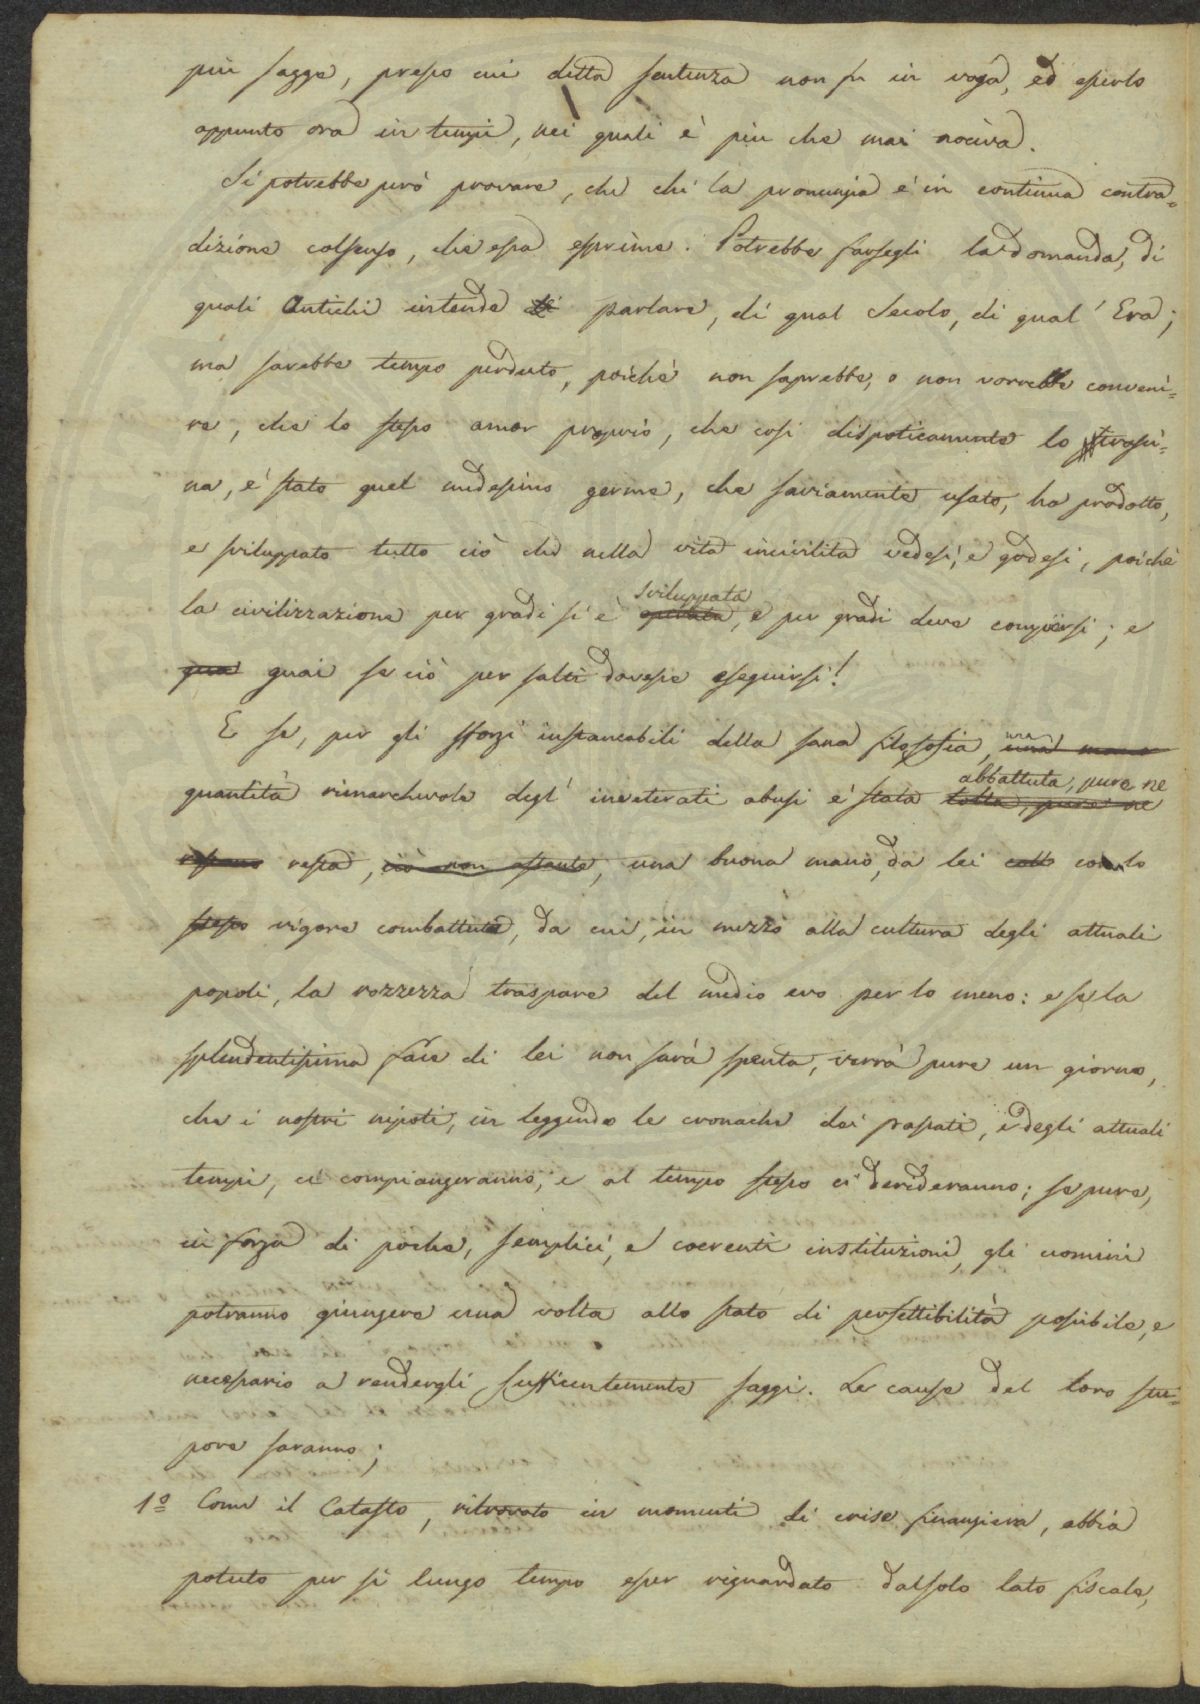 più sagge, presso cui detta sentenza non fu in voga, ed esserlo
appunto ora in tempi, nei quali è più che mai nociva.
Si potrebbe però provare, che chi la pronunzia è in continua contra=
dizione col senso, che essa esprime. Potrebbe farsegli la domanda, di
quali Antichi intende di parlare, di qual Secolo, di qual' Era;
ma sarebbe tempo perduto, poichè non saprebbe, o non vorrebbe conveni=
re, che lo stesso amor proprio, che così dispoticamente lo strasci=
na, è stato quel medesimo germe, che saviamente usato, ha prodotto,
e sviluppato tutto ciò che nella vita incivilita vedesi, e godesi, poichè
sviluppata
la civilizzazione per gradi si è operata, e per gradi deve compiersi; e
qua guai se ciò per salti dovesse eseguirsi!
E se, per gli sforzi instancabili della sana filosofia, una
abbattuta, pure ne
quantità rimarchevole degl' inveterati abusi è stata tolta, pure ne
resta, ciò non ostante, una buona mano, da lei colla con lo
stesso vigore combattuta, da cui, in mezzo alla cultura degli attuali
popoli, la rozzezza traspare del medio evo per lo meno: e se la
splendentissima face di lei non sarà spenta, verrà pure un giorno,
che i nostri nipoti, in leggendo le cronache dei passati, e degli attuali
tempi, ci compiangeranno, e al tempo stesso ci derideranno; se pure,
in forza di poche, semplici, e coerenti instituzioni, gli uomini
potranno giungere una volta allo stato di perfettibilità possibile, e
necessario a rendergli sufficentemente saggi. Le cause del loro stu=
pore saranno;
1º Come il Catasto, ritrovato in momenti di crise finanziera, abbia
potuto per sì lungo tempo esser riguardato dal solo lato fiscale,